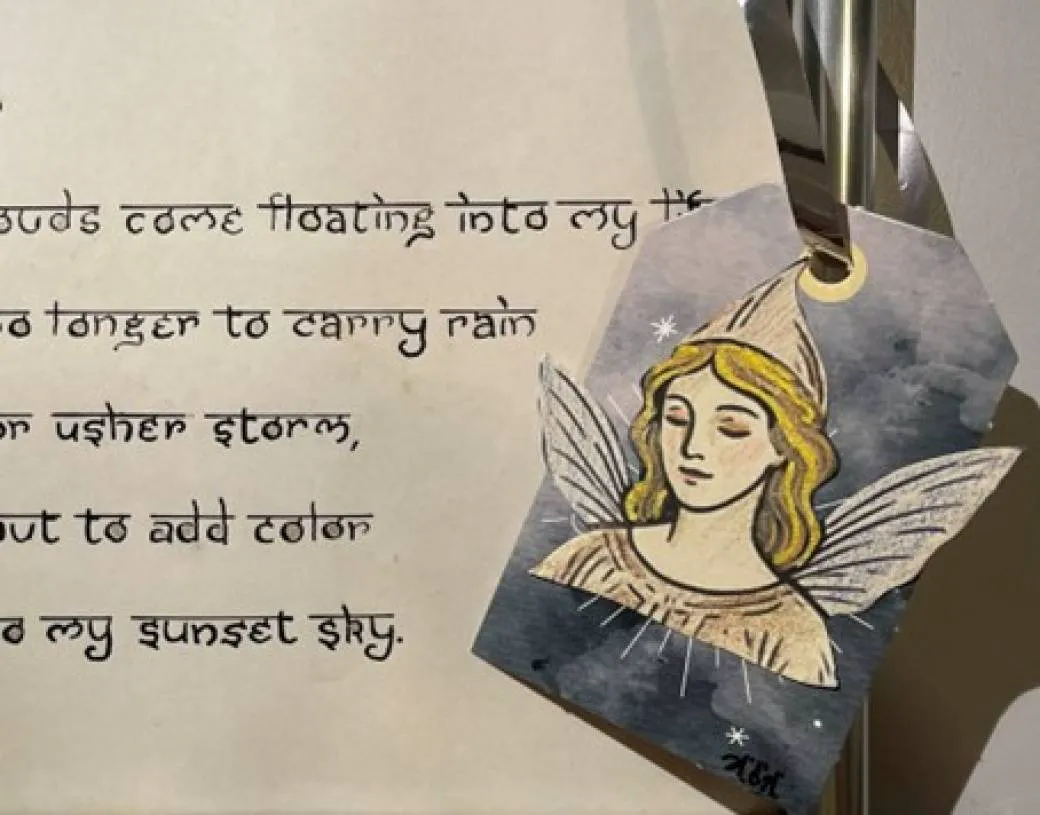 ouds come floating into my lif
o longer to carry rain
or usher storm,
out to add color
o my sunset sky.